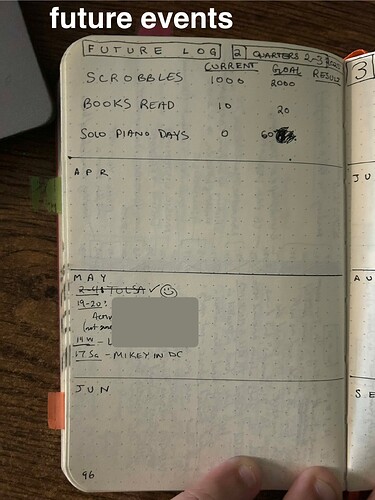 future events
FUTURE LOG 2 QUARTERS 2-3
CURRENT GOAL RESULT
SCROBBLES 1000 2000
BOOKS READ 10 20
SOLO PIANO DAYS 0 60
APR
MAY
2-4: TULSA ✓ ☺
19-20:
(not
17 Sa - MIKEY IN DC
JUN
96
3
JU
AU
SE